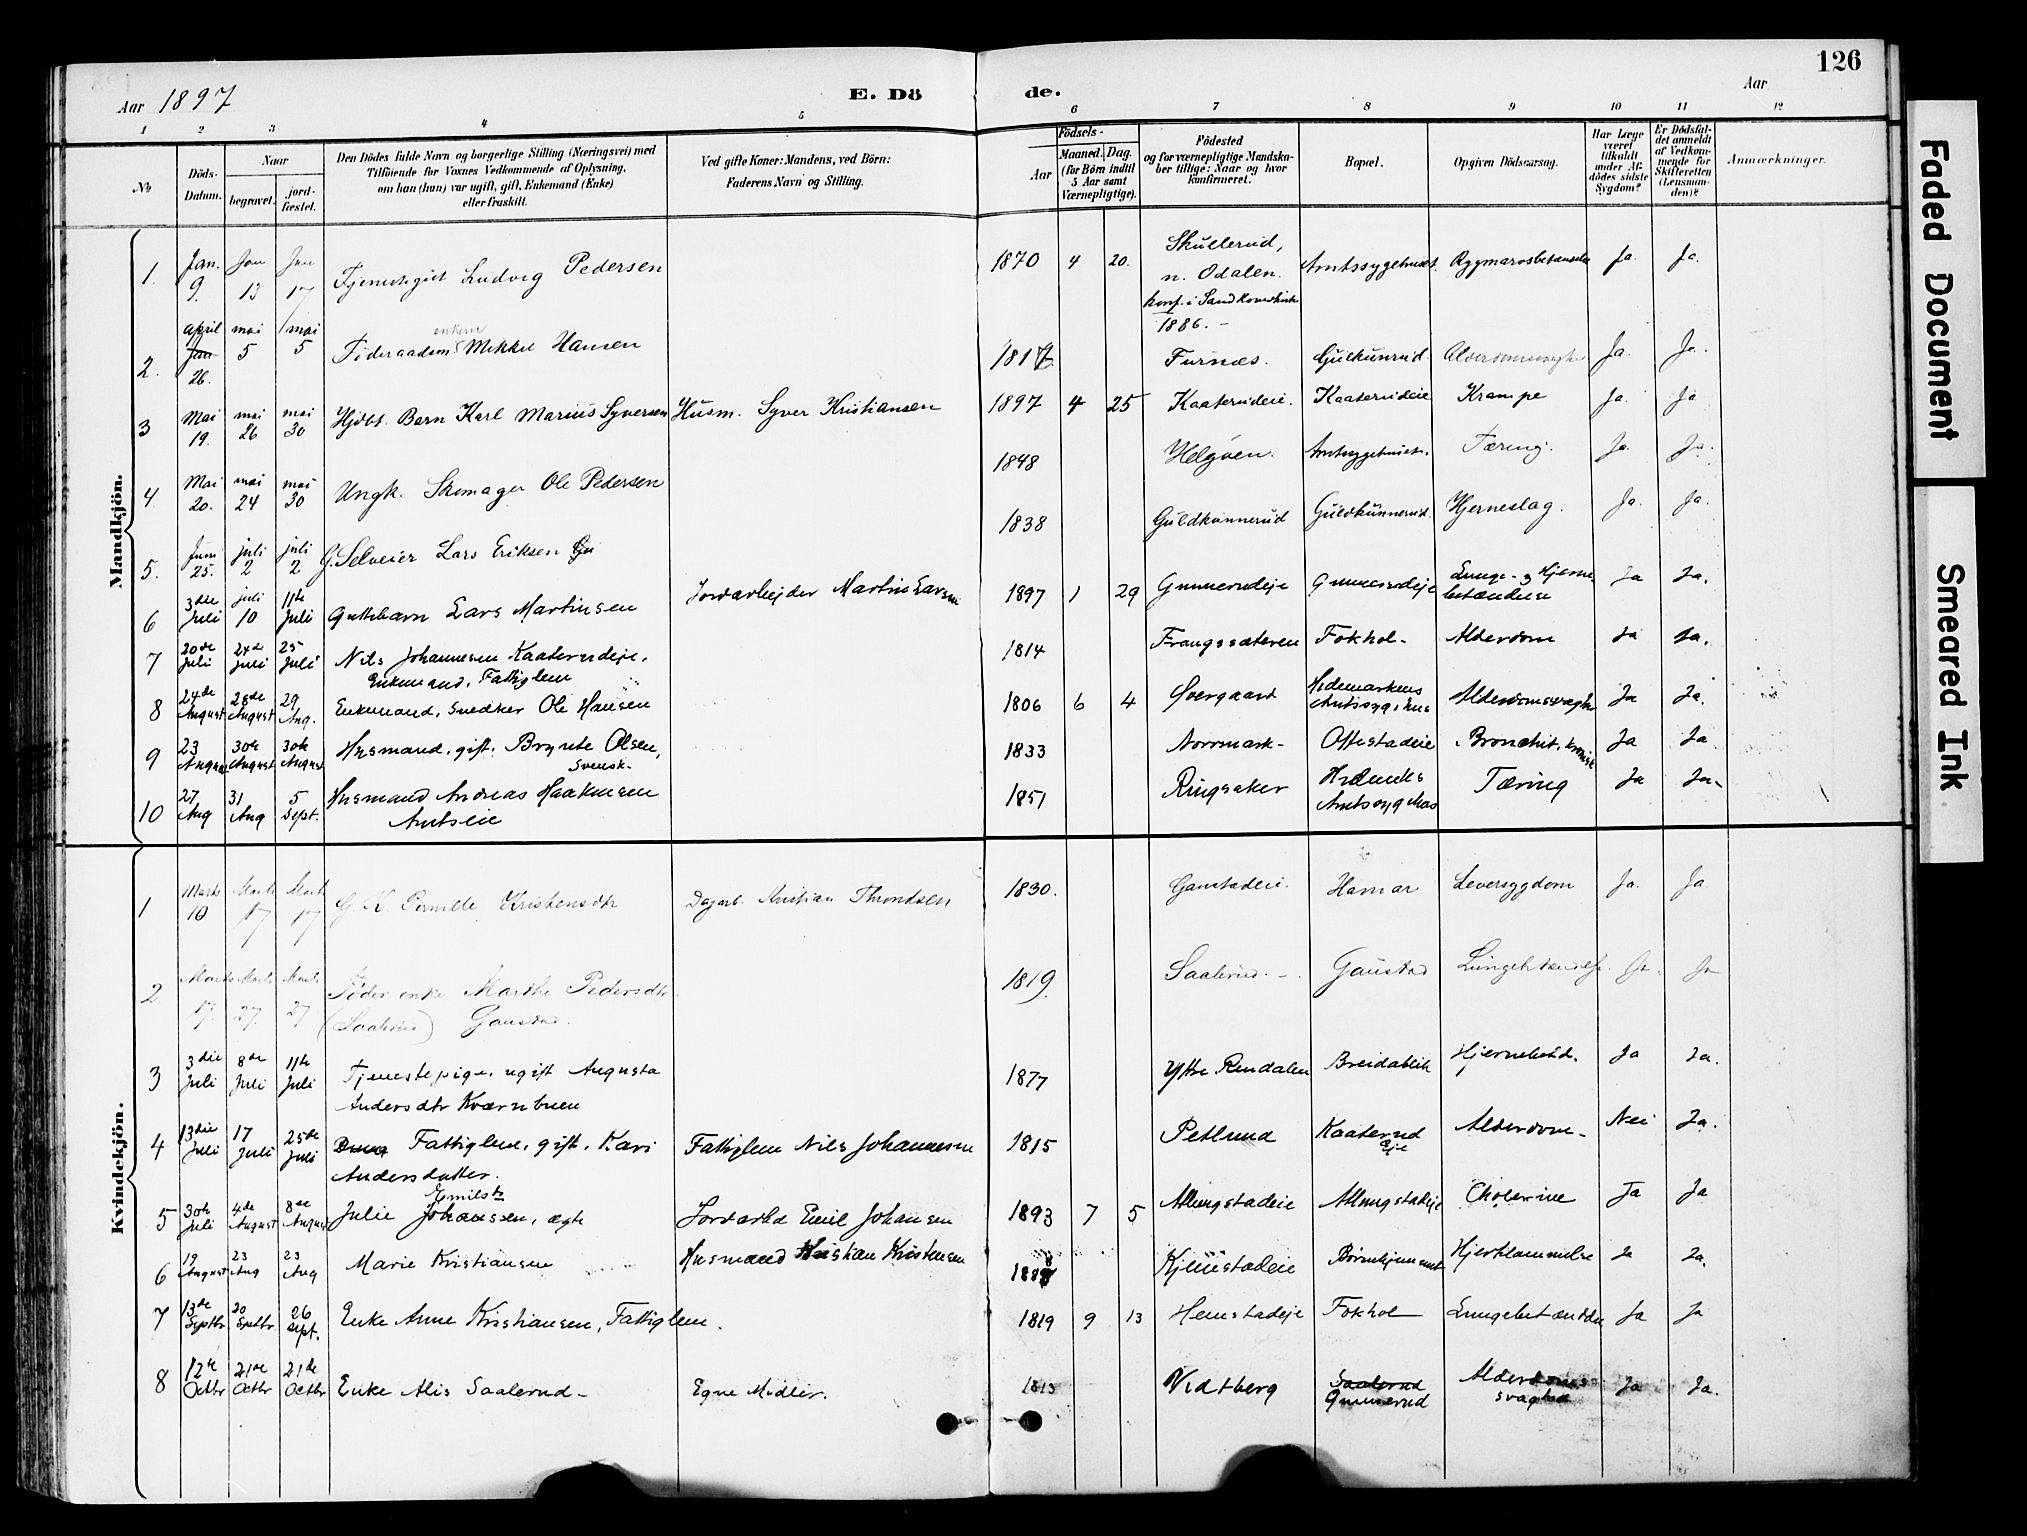 126
Aar 1897
E. Dö
de.
Aar
1 2 3 4 5 6 7 8 9 10 11 12
No
Döds-Datum.
Naar
begravet.
jord-fæstet.
Den Dödes fulde Navn og borgerlige Stilling (Næringsvei) med
Tilföiende for Voxnes Vedkommende af Oplysning,
om han (hun) var ugift, gift, Enkemand (Enke)
eller fraskilt.
Ved gifte Koner: Mandens, ved Börn:
Faderens Navn og Stilling.
Födsels-
Aar
Maaned. Dag.
(for Börn indtil
5 Aar samt
Værnepligtige).
Födested
og for værnepligtige Mandska-
ber tillige: Naar og hvor
konfirmeret.
Bopæl.
Opgiven Dödsaarsag.
Har Læge
været
tilkaldt
under Af-
dödes sidste
Sygdom?
Er Dödsfal-
det anmeldt
af Vedkom-
mende for
Skifteretten
(Lensman-
den)?
Anmærkninger.
Mandkjön.
1. Jan. 9. Jan 13 Jan 17 Tjenestegut Ludvig Pedersen 1870 4 20. Skullerud, n. Odalen. konf. i Sand 1886. – Amtssygehuset. Rygmarvsbetændelse Ja. Ja.
2. april Jan 26. mai 5 mai 5 Föderaadsm. enkem Mikkel Hansen 1817 Furnæs. Gulkunrud Ja. Ja.
3 Mai 19. mai 26 mai 30 Hjdbt. Barn Karl Marius Syversen Husm. Syver Kristiansen 1897 4 25 Kaaterudeie. Kaaterudeie Krampe Ja. Ja
4 Mai 20. mai 24 mai 30 Ungk. Skomager Ole Pedersen 1848 Helgöen. Amtssygehuset. Tæring. Ja. Ja.
5. Juni 25. juli 2 juli 2 G. Selveier Lars Eriksen Gu 1838 Guldkunnerud Guldkunnerud. Hjerneslag. Ja. Ja.
6 3die Juli juli 10 11te Juli Guttebarn Lars Martinsen Jordarbejder Martin Larsen 1897 1 29 Gunnerudeje Gunnerudeje Lunge- og Hjerne betændelse Ja Ja.
7 20de Juli 24de Juli 25 Juli Nils Johannesen Kaaterudeje. Enkemand, Fattiglem 1814 Frangssæteren Fokhol– Alderdom Ja Ja.
8 24de August 28de August 29 Aug. Enkemand, Snedker Ole Hansen 1806 6 4 Övergaard Hedemarkens Amtssygehus Alderdomssvaghed Ja Ja.
9 23 August 30te August 30te August Husmand, gift. Brynte Olsen, Svensk– 1833 Norrmark– Ottestadeie Bronchit, kronisk Ja Ja
10 27 Aug 31 Aug 5 Sept. Husmand Andreas Haakensen Amtseie 1851 Ringsaker Hedemks Amtssyghus Tæring Ja Ja.
Kvindekjön.
1 Marts 10 Marts 17 Marts 17 G. K. Pernille Kristensdtr Dagarb. Kristian Throndsen 1830. Gaustadeie. Hamar Leversygdom Ja. Ja
2 Marts 17. Marts 27. Marts 27 Föder.enke Marthe Pedersdtr (Saalerud) Gaustad. 1819. Saalerud. – Gaustad Ja. Ja
3 3die Juli 8de Juli 11te Juli Tjenestepige, ugift Augusta Andersdtr Kværnbuen 1877 Ytre Rendalen Breidablik Hjernebetd. Ja Ja.
4 13die Juli 17 Juli 25de Juli Fattiglem, gift. Kari Andersdatter. Fattiglem Nils Johannesen 1815 Petlund Kaaterud Eje Alderdom– Nei Ja.
5 30te Juli 4de August 8de August Julie Emilsdtr Johansen, ægte Jordarbd Emil Johansen 1893 7 5 Allungstadeie Allungstadeje Cholerine Ja Ja
6 19 August 23 Aug 23 Aug Marie Kristiansen Husmand Kristian Kristensen 1888 Kjemstadeie Börnehjemmet Hjerklammelse Ja Ja.
7 13de Septbr 20 Septbr 26 Sept. Enke Anne Kristiansen, Fattiglem. 1819 9 13 Hemstadeje Fokhol Lungebetændelse Ja Ja
8 12te Octbr 21de Octbr 21de Octbr Enke Alis Saalerud– Egne Midler. 1813 Vidtberg Saalerud Gunnerud Alderdoms svaghed Ja Ja.
Faded Document
Smeared Ink